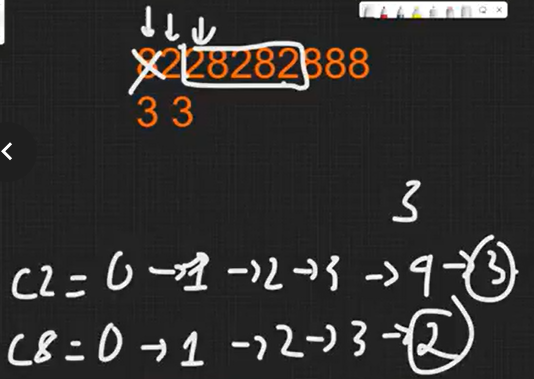 82282822888
3 3
3
C2 = 0 → 1 → 2 → 3 → 4 → 3
C8 = 0 → 1 → 2 → 3 → 2